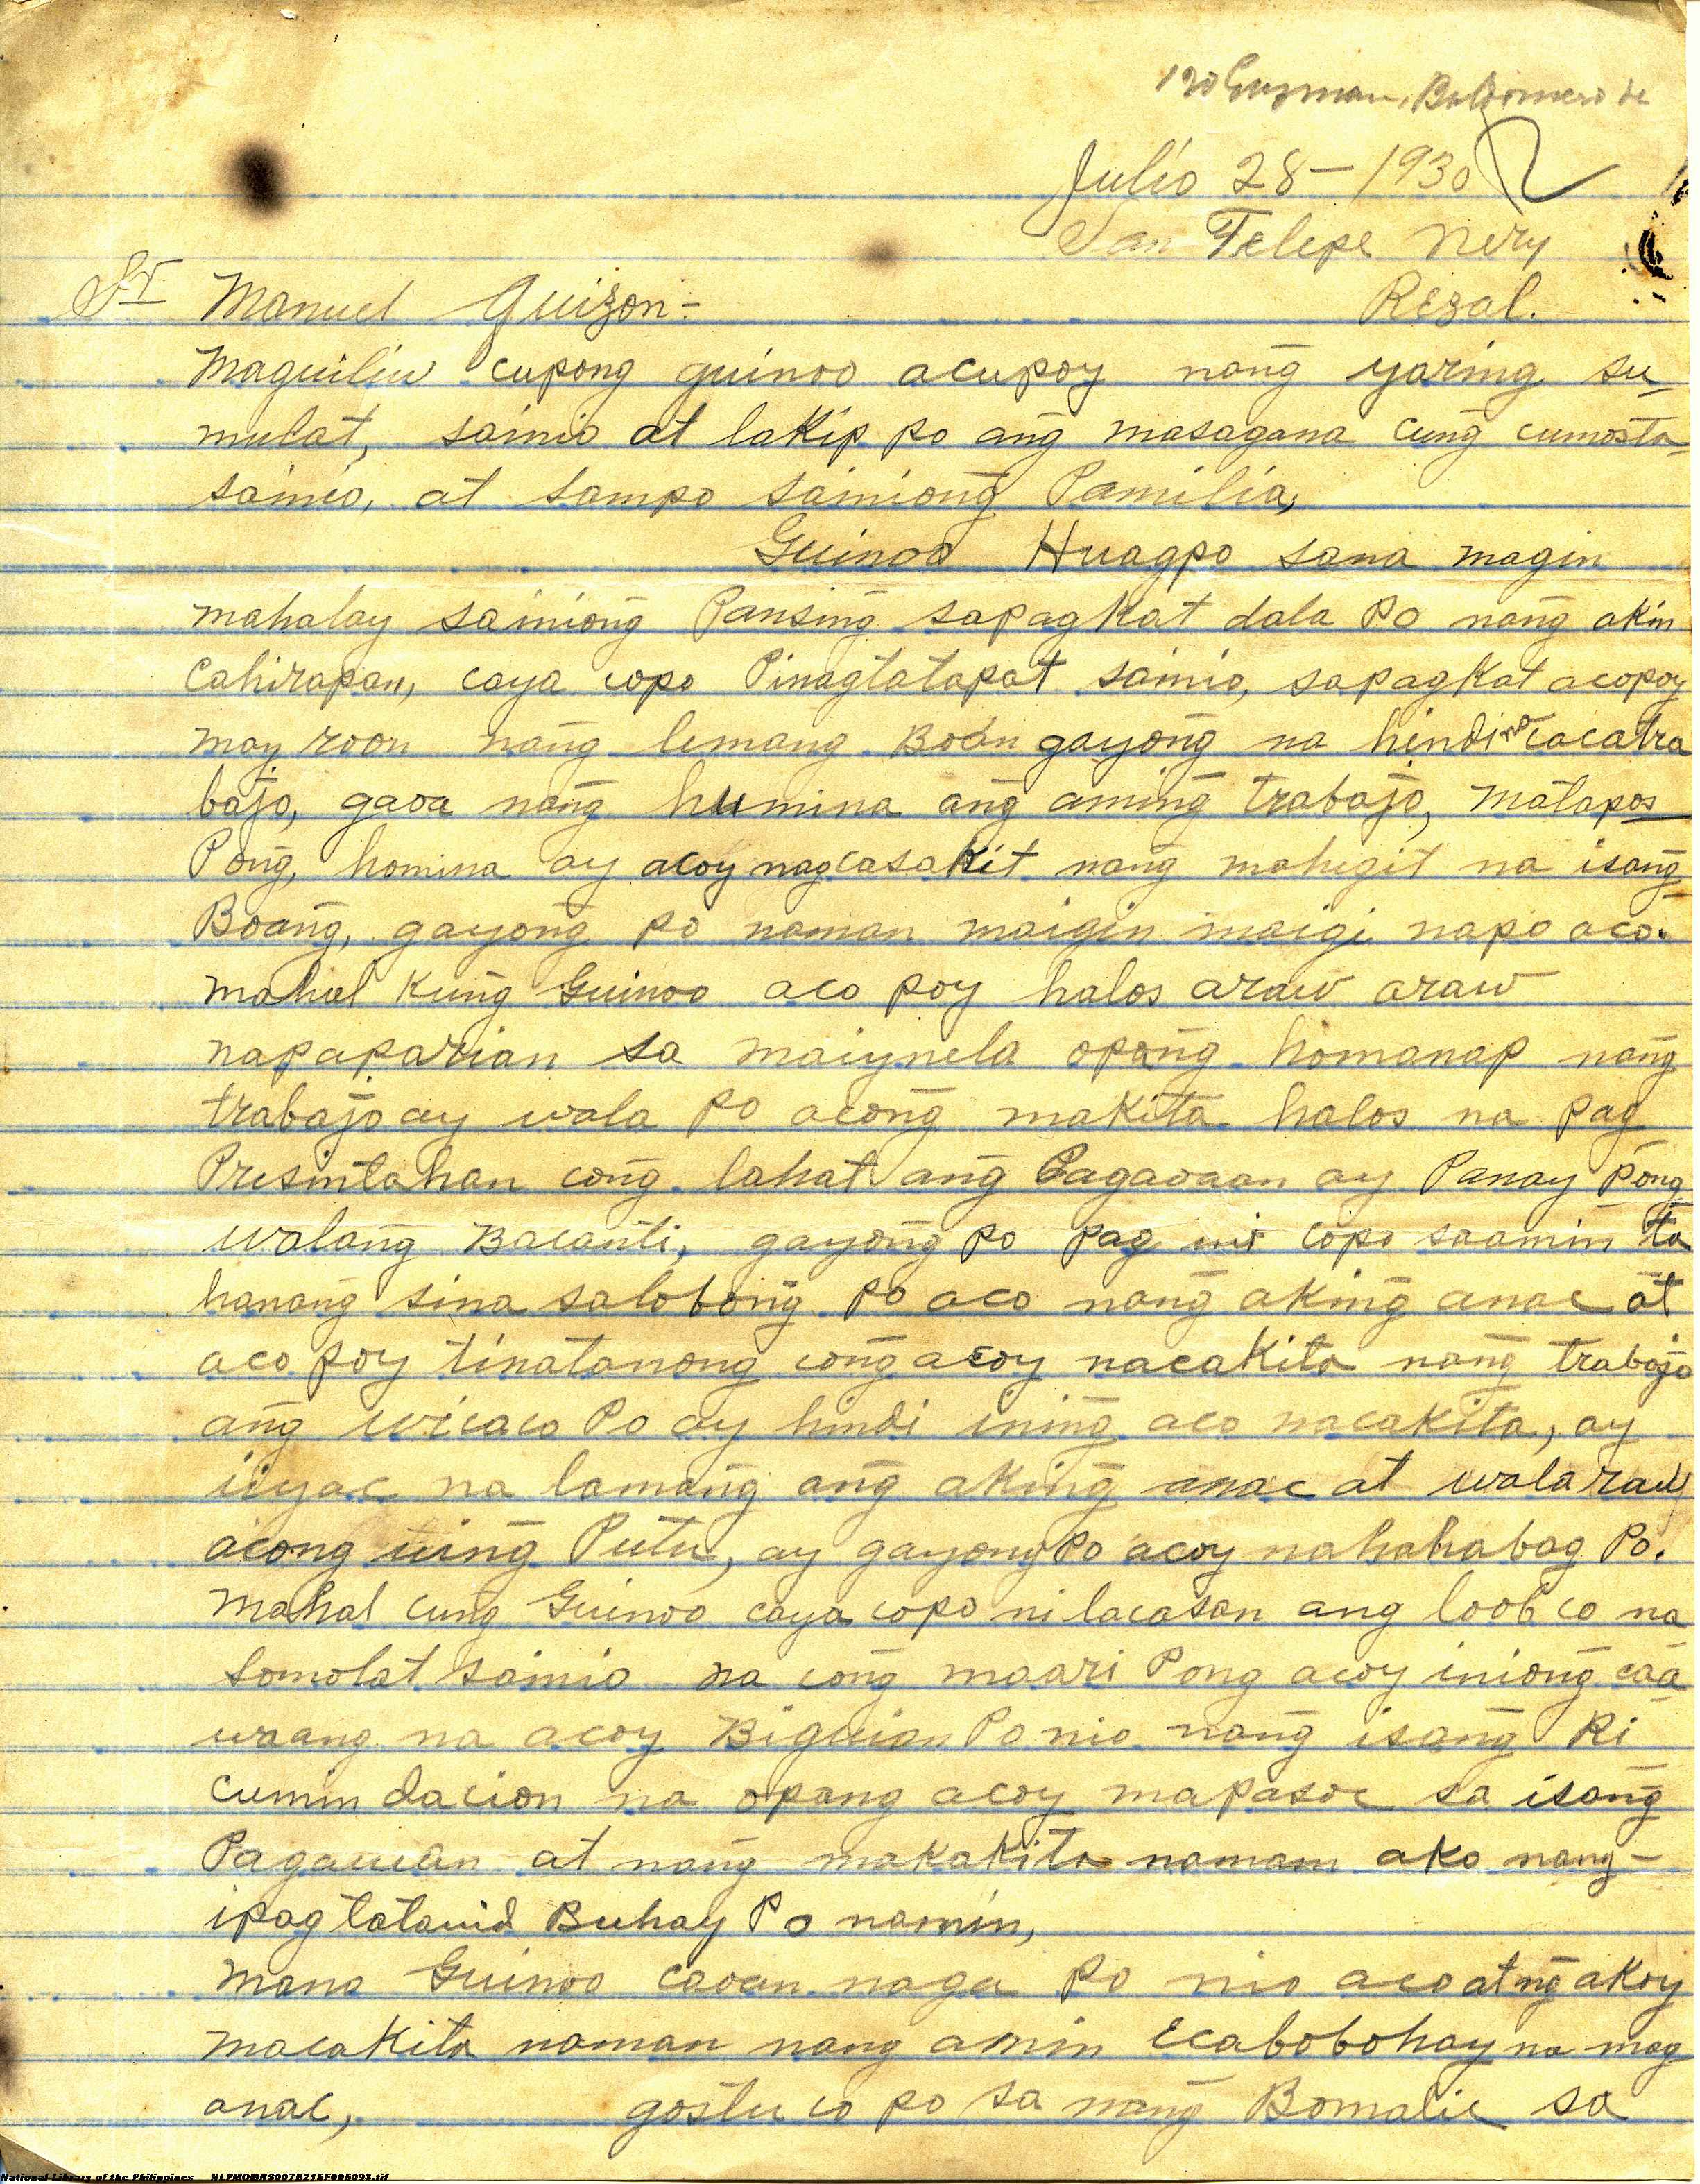 120 Guzman, Baldomero de
Julio 28 - 1930
San Felepe Nery
Rezal.
Sr Manuel Quizon-
Maguiliw cupong guinoo acupoy nang yaring su_
mulat, sainio at lakip po ang masagana cung cumosta
sainio, at sampo sainiong Pamilia,
Guinoo Huagpo sana magin
mahalay sainiong Pansing sapagkat dala Po nang akin
Cahirapan, caya copo Pinagtatapat sainio, sapagkat acopoy
may roon nang lemang Boan gayong na hindi na cacatra
bajo, gaoa nang humina ang aming trabajo, matapos
Pong, homina ay acoy nagcasakit nang mahigit na isang
Boang, gayong po naman maigin maigi napo aco.
mahal kung Guinoo aco poy halos araw araw
napaparian sa maiynela opang homanap nang
trabajo ay wala po acong makita halos na pag
Presintahan cong lahat ang Pagaoaan ay Panay Pong
walang Bacanti, gayong po pag copo saamin ta
hanang sina salobong po aco nang aking anac at
aco poy tinatanong cong acoy nacakita nang trabajo
ang wicaco Po ay hindi ining aco nacakita, ay
iiyac na lamang ang aking anac at wala raw
acong uing Putu, ay gayong Po acoy nahahabag Po.
mahal cung Guinoo caya copo nilacasan ang loob co na
somolat sainio na cong maari Pong acoy iniong caa
waang na acoy Biguian Po nio nang isang Ri
cumin dacion na opang acoy mapasoc sa isang
Pagauuan at nang makakita namam ako nang-
ipag tatauid Buhay Po namin,
mana Guinoo caoan naga po nio aco at ng akoy
macakita naman nang amin Ecabobohay na mag
anac, gostu co po sa nang Bomalic sa
National Library of the Philippines NLPMQMNS007B215F005093.tif